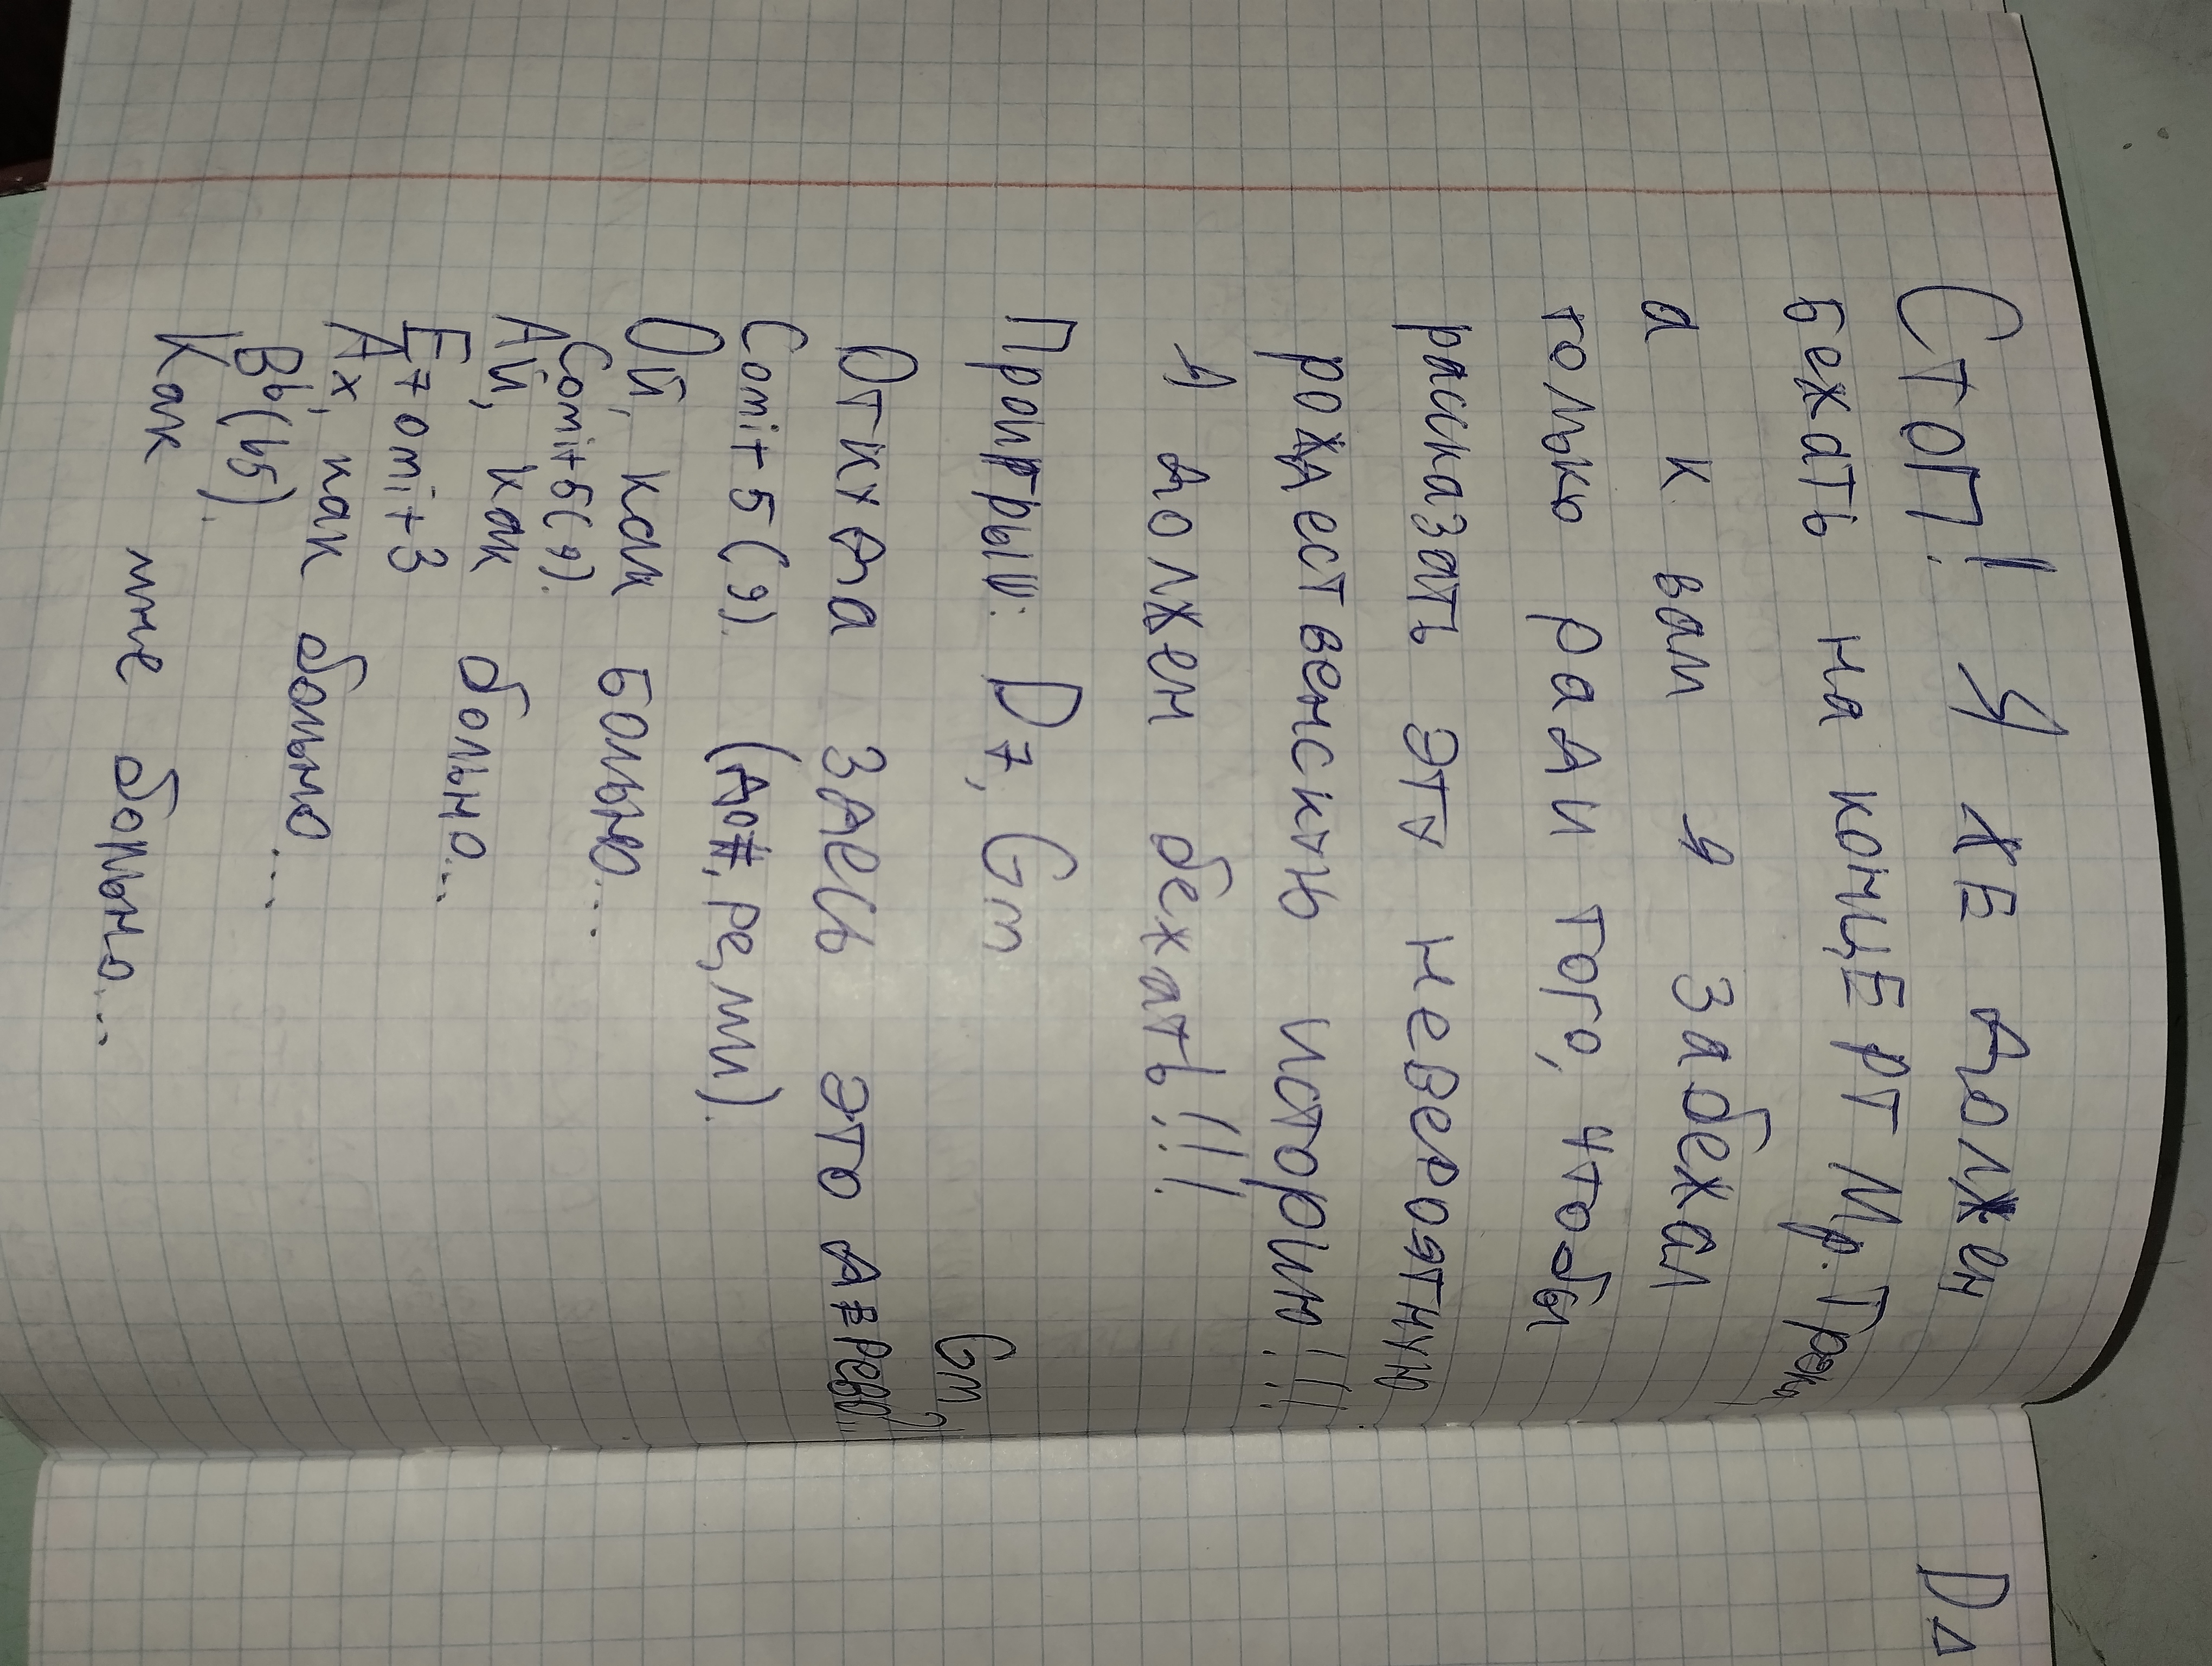 Стоп! Я же должен
бежать на концерт Мр. Трэки,
а к вам я забежал
только ради того, чтобы
расказать эту невероятную
рождественскую историю!!!
Я должен бежать!!!
Проигрыш: D7, Gm
Gm
Откуда здесь это дерево?!
Comit5(9). (до#, ре, ми).
Ой, как больно...
Comit5(9).
Ай, как больно...
E7omit3
Ах, как больно...
Bb(b5).
Как мне больно...